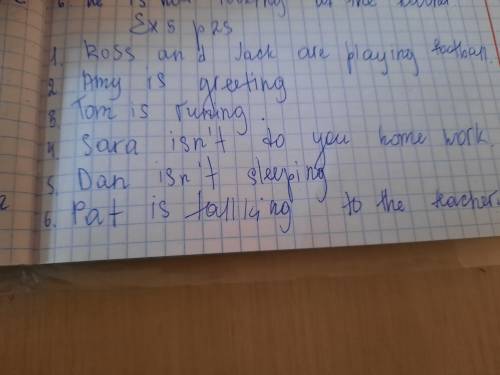 6. He is not looking at the
Ex 5 p 25
1. Ross and Jack are playing football.
2. Amy is greeting
3. Tom is runing.
4. Sara isn't do you home work.
5. Dan isn't sleeping
6. Pat is tallking to the teacher.